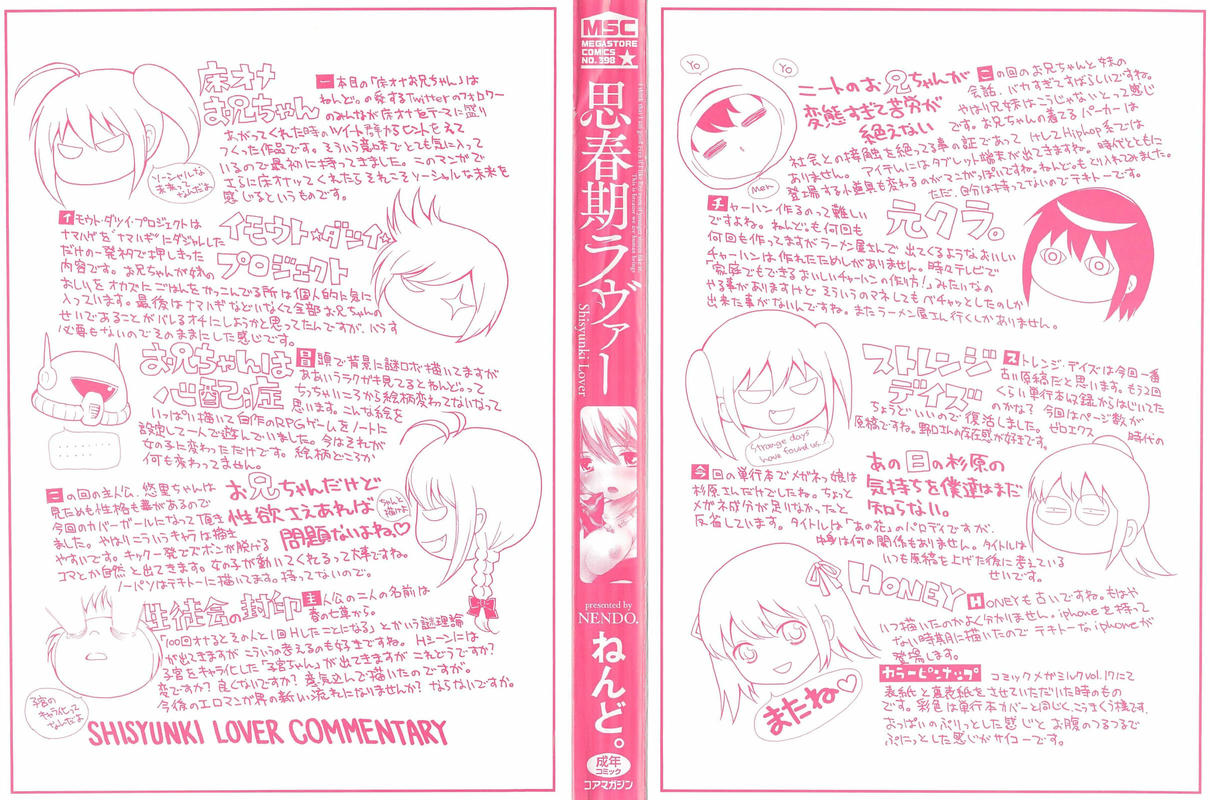 床オナ
お兄ちゃん
一本目の「床オナお兄ちゃん」は
ねんど。の愛するTwitterのフォロワー
のみんなが床オナをテーマに盛り
あがってくれた時のツイート群からヒントをえて
つくった作品です。そういう意味でとても気に入って
いるので最初に持ってきました。このマンガで
さらに床オナってくれたらそれこそソーシャルな未来を
感じるというものです。
ソーシャルな
イモウト・ダツイ・プロジェクトは
ナマハゲを"ナマハギ"にダジャレした
だけの一発ネタで押しきった
内容です。お兄ちゃんが妹の
おしりをオカズにごはんをかっこんでる所は個人的に気に
入っています。最後はナマハギなどいなくて全部お兄ちゃんの
せいであることがバレるオチにしようかと思ってたんですが、バラす
必要もないのでそのままにした感じです。
イモウト☆ダツイ☆
プロジェクト
お兄ちゃんは
心配症
冒頭で背景に謎ロボ描いてますが
ああいうラクガキ見てるとねんど。って
ちっちゃいころから絵柄変わってないなって
思います。こんな絵を
いっぱい描いて自作のRPGゲームをノートに
設定して一人で遊んでいました。今はそれが
女の子に変わっただけです。絵柄どころか
何も変わってません。
この回の主人公、悠里ちゃんは
見ためも性格も華があるので
今回のカバーガールになって頂き
ました。やはりこういうキャラは描き
やすいです。キック一発でズボンが脱げる
コマとか自然と出てきます。女の子が動いてくれるって大事ですね。
ノーパソはテキトーに描いてます。持ってないので。
お兄ちゃんだけど
性欲さえあれば
問題ないよね♡
ちゃんと
描けよ
生徒会の封印
主人公の二人の名前は
春の七草から。
「100回オナるとその人と1回Hしたことになる」とかいう謎理論
が出てきますがこういうの考えるのも好きですね。Hシーンには
子宮をキャラ化した「子宮ちゃん」が出てきますがこれどうですか?
変ですか?良くないですか?意気込んで描いたのですが。
今後のエロマンガ界の新しい流れになりませんか?ならないですか。
子宮の
キャラ化って
なんだよ
SHISYUNKI LOVER COMMENTARY
MSC
MEGASTORE
COMICS
NO.398
思春期ラヴァー
Shisyunki Lover
This is because we are human beings
presented by
NENDO.
ねんど。
成年
コミック
コアマガジン
Yo
Yo
Meh
ニートのお兄ちゃんが
変態すぎて苦労が
絶えない
この回のお兄ちゃんと妹の
会話、バカすぎてすばらしいですね。
やはり兄妹はこうじゃないとって感じ
です。お兄ちゃんの着てるパーカーは
社会との接触を絶ってる事の証であってけしてHiphop系では
ありません。アイテムにはタブレット端末が出てきますね。時代とともに
登場する小道具も変わるのがマンガっぽいですね。ねんど。もとり入れてみました。
ただ、自分は持ってないのでテキトーです。
チャーハン作るのって難しい
ですよね。ねんど。も何回も
何回も作ってますがラーメン屋さんで出てくるようなおいしい
チャーハンは作れたためしがありません。時々テレビで
「家庭でもできるおいしいチャーハンの作り方!」みたいなの
やる事がありますけどそういうのマネしてもベチャッとしたのしか
出来た事がないんですね。またラーメン屋さん行くしかありません。
元クラ。
ストレンジ
デイズ
ストレンジ・デイズは今回一番
古い原稿だと思います。もう2回
くらい単行本収録からはじいてた
のかな?今回はページ数が
ちょうどいいので復活しました。ゼロエクス時代の
原稿ですね。野口さんの存在感が好きです。
Strange days
have found us...
あの日の杉原の
気持ちを僕達はまだ
知らない。
今回の単行本でメガネっ娘は
杉原さんだけでしたね。ちょっと
メガネ成分が足りなかったと
反省しています。タイトルは「あの花」のパロディですが、
中身は何の関係もありません。タイトルは
いつも原稿を上げた後に考えている
せいです。
HONEY
HONEYも古いですね。もはや
いつ描いたのかよく分かりません。iphoneを持って
ない時期に描いたのでテキトーなiphoneが
登場します。
またね♡
カラーピンナップ
コミックメガミルクvol.17にて
表紙と裏表紙をさせていただいた時のもの
です。彩色は単行本カバーと同じく、こうきくう様です。
おっぱいのぷりっとした感じとお腹のつるつるで
ぷにっとした感じがサイコーです。